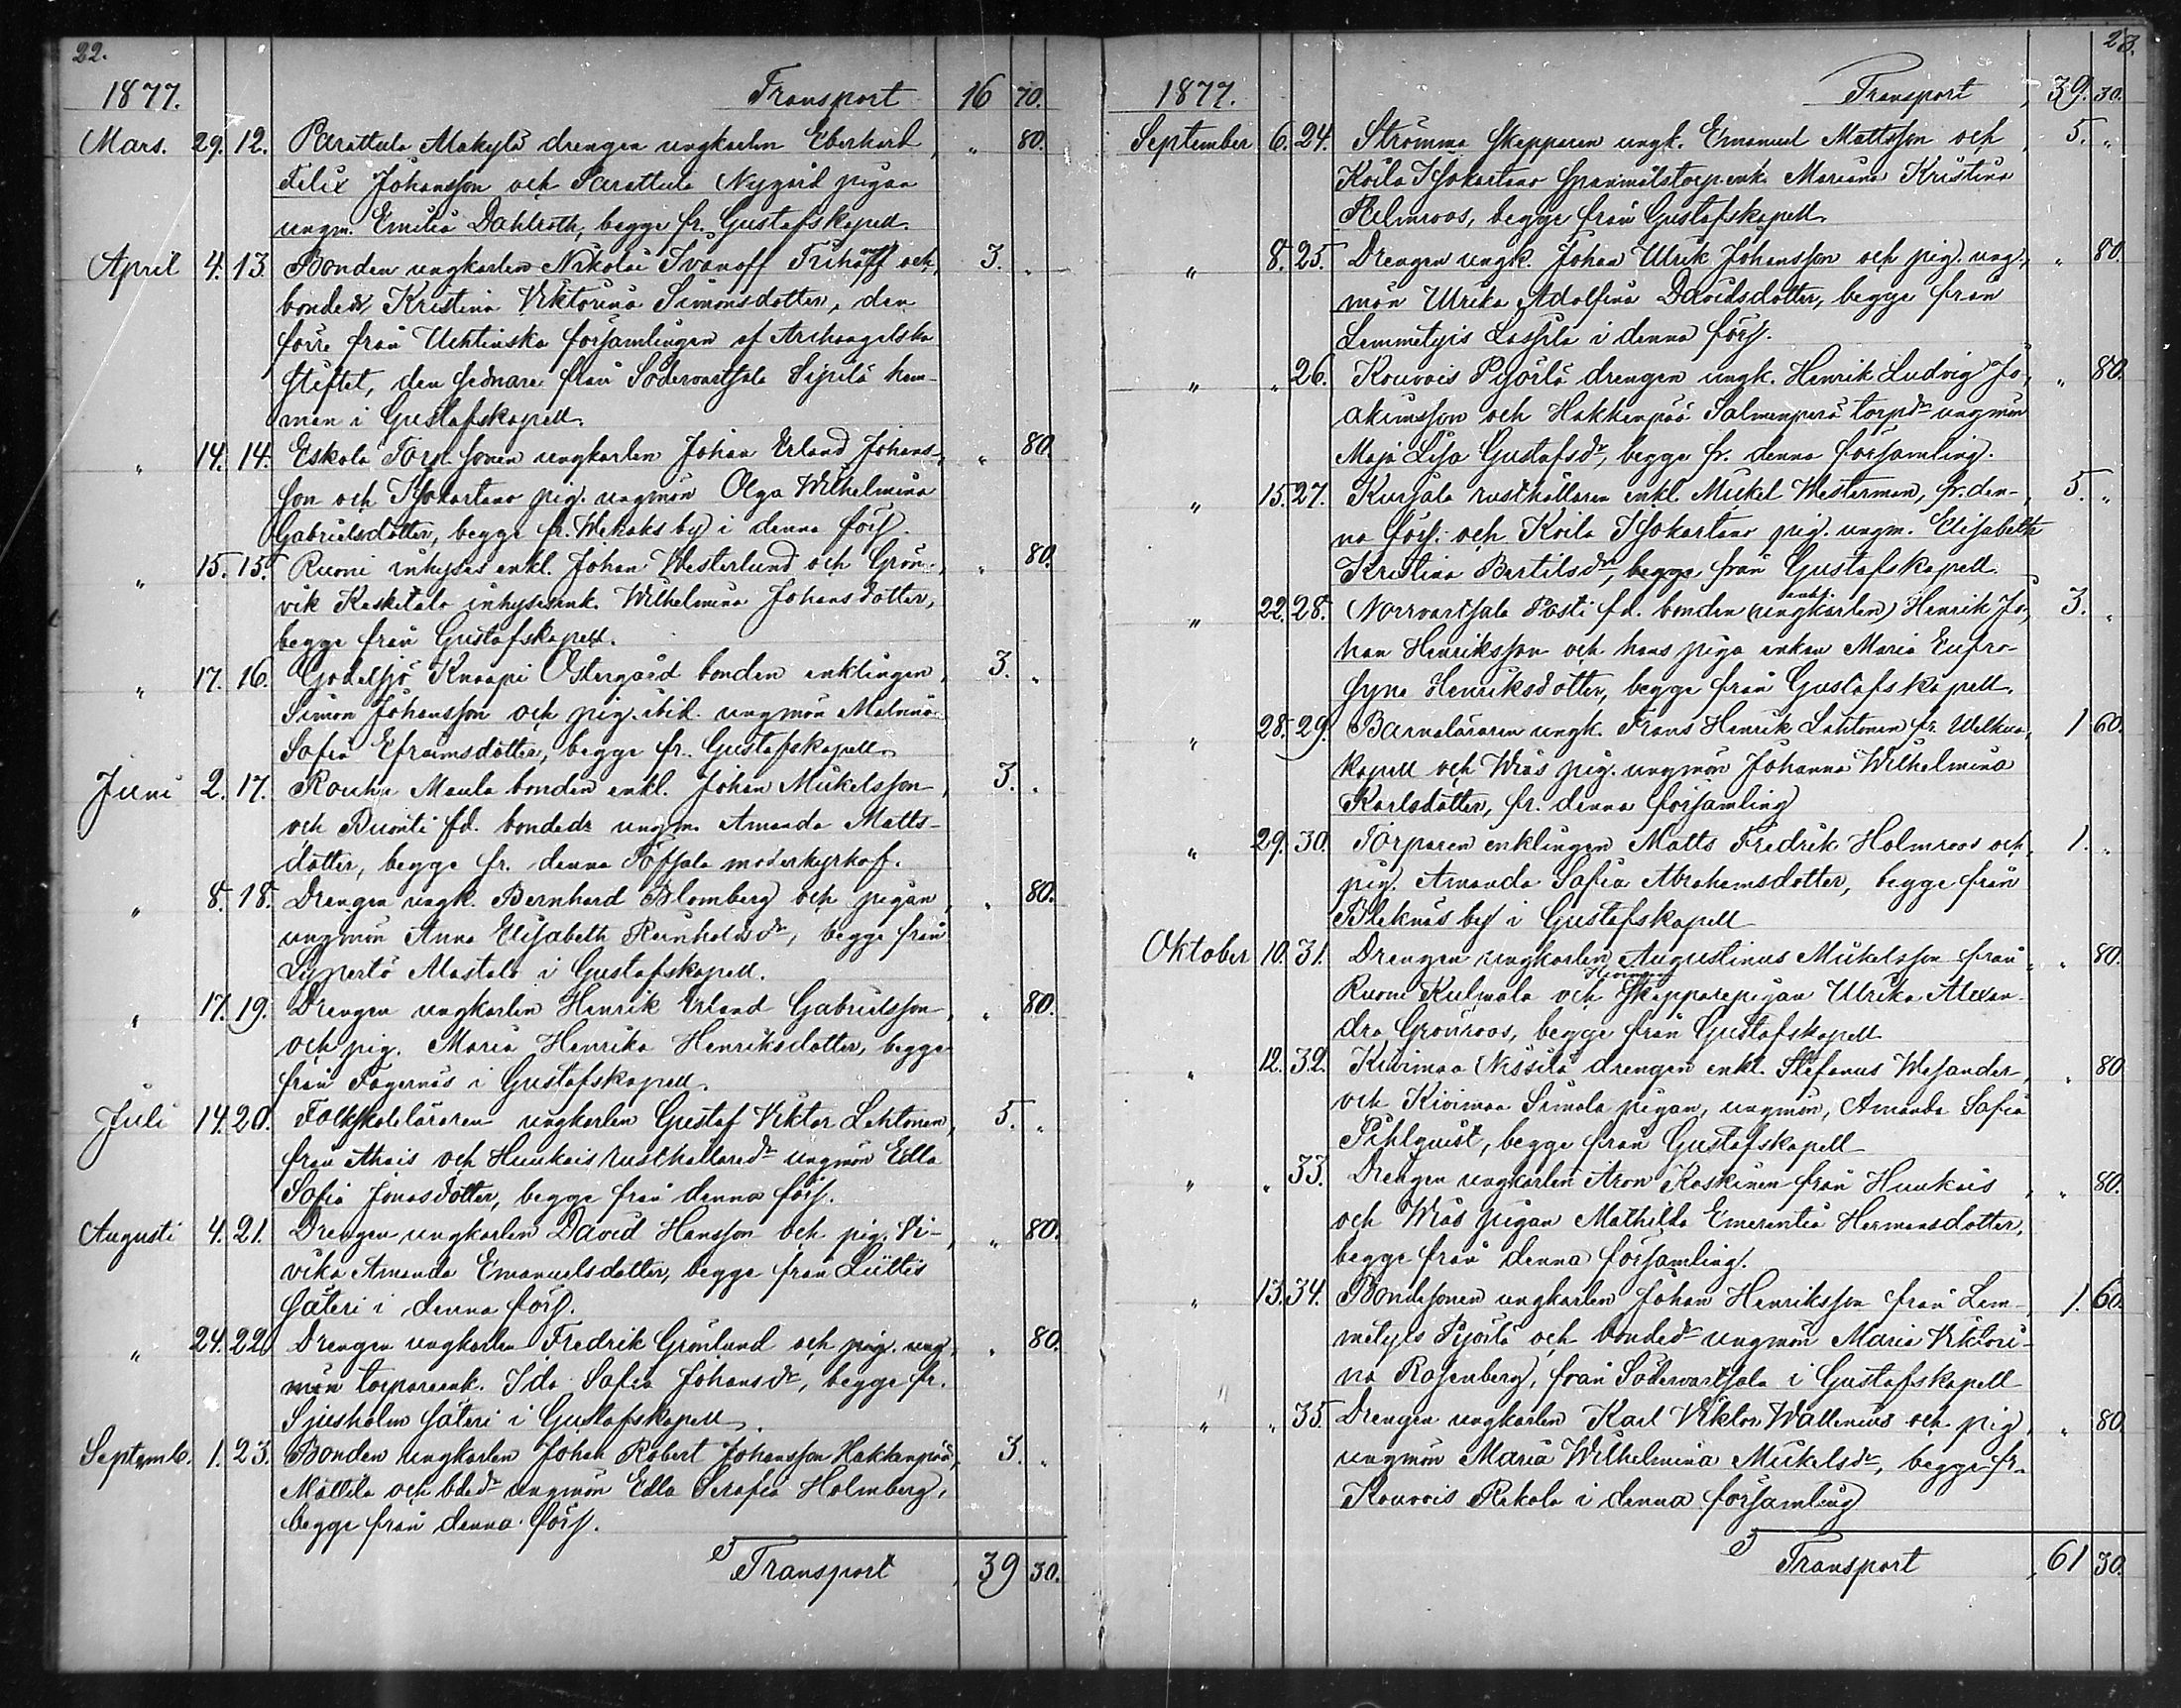 22.
1877. Transport 16 70.
Mars. 29. 12. Parattula Mäkylä drengen ungkarlen Eberhard „ 80.
Felix Johansson och Parattula Nygård pigan
ungm. Emilia Dahlroth, begge fr. Gustafskapell.
April 4. 13. Bonden ungkarlen Nikolai Ivanoff och 3. „
bonded. Kristina Viktorina Simonsdotter, den
förre från Uchtinska församlingen af Archangelska
stiftet, den sednare från Södervartsala Sipilä hem-
man i Gustafskapell.
„ 14. 14. Eskola Torp. sonen ungkarlen Johan Erland Johans- „ 80.
son och Isokartano pig. ungmön Olga Wilhelmina
Gabrielsdotter, begge fr. Wehaks by i denna förs.
„ 15. 15. Ruoni inhyses enkl. Johan Westerlund och Grön- „ 80.
vik Kesketalo inhysesenk. Wilhelmina Johansdotter,
begge från Gustafskapell.
„ 17. 16. Godelsjö Knaapi Östergård bonden enklingen 3. „
Simon Johansson och pig. ibid. ungmön Malvina
Sofia Efraimsdotter, begge fr. Gustafskapell.
Juni 2. 17. Rouhu Maula bonden enkl. Johan Mikelsson 3. „
och Buonti fd. bondedr ungm. Amanda Matts-
dotter, begge fr. denna Töfsala moderkyrkof.
„ 8. 18. Drengen ungk. Bernhard Blomberg och pigan „ 80.
ungmön Anna Elisabeth Reinholdsdr, begge från
Lypertö Mastalo i Gustafskapell.
„ 17. 19. Drengen ungkarlen Henrik Erland Gabrielsson „ 80.
och pig. Maria Henrika Henriksdotter, begge
från Fagernäs i Gustafskapell.
Juli 14. 20. Folkskoleläraren ungkarlen Gustaf Viktor Lehtonen 5. „
från Ahais och Hunkais rusthållaredr ungmön Edla
Sofia Jonasdotter, begge från denna förs.
Augusti 4. 21. Drengen ungkarlen David Hansson och pig. Vi- „ 80.
vika Amanda Emanuelsdotter, begge från Liittis
säteri i denna förs.
„ 24. 22. Drengen ungkarlen Fredrik Grönlund och pig. ung- „ 80.
mön torpareenk. Ida Sofia Johansdr, begge fr.
Sjusholm säteri i Gustafskapell.
Septemb. 1. 23. Bonden ungkarlen Johan Robert Johansson Hakkenpää 3. „
Mattila och bdedr ungmön Edla Serafia Holmberg,
begge från denna förs.
Transport 39 30.
23.
1877. Transport 39. 30.
September 6. 24. Strömma Skepparen ungk. Emanuel Mattsson och 5. „
Koila Isokartano Spanmålstorpenk. Mariana Kristina
Palmroos, begge från Gustafskapell.
„ 8. 25. Drengen ungk. Johan Ulrik Johansson och pig. ung- „ 80.
mön Ulrika Adolfina Davidsdotter, begge från
Lemmetyis Lassila i denna förs.
„ „ 26. Kouvois Pyörlä drengen ungk. Henrik Ludvig Jo- „ 80.
akimsson och Hakkenpää Salmenperä torpdr ungmön
Maja Lisa Gustafsdr, begge fr. denna församling.
„ 15. 27. Kursala rusthållaren enkl. Mickel Westerman, fr. den- 5. „
na förs. och Koila Isokartano pig. ungm. Elisabeth
Kristina Bertilsdr, begge från Gustafskapell.
„ 22. 28. Norrvartsala Pasti fd. bonden (ungkarlen) enkl. Henrik Jo- 3. „
han Henriksson och hans piga enkan Maria Eufro-
syna Henriksdotter, begge från Gustafskapell.
„ 28. 29. Barnaläraren ungk. Frans Henrik Lehtonen fr. Welkua 1 60.
kapell och Wiäs pig. ungmön Johanna Wilhelmina
Karlsdotter, fr. denna församling
„ 29. 30. Torparen enklingen Matts Fredrik Holmroos och 1. „
pig. Amanda Sofia Abrahamsdotter, begge från
Bleknäs by i Gustafskapell
Oktober 10. 31. Drengen ungkarlen Augustinus Mikelsson från „ 80.
Ruoni Kulmala och Skepparepigan Ulrika Alexan-
dra Grönroos, begge från Gustafskapell
„ 12. 32. Kivimaa Nissilä drengen enkl. Stefanus Wesander „ 80
och Kivimaa Simola pigan, ungmön, Amanda Sofia
Pihlquist, begge från Gustafskapell
„ „ 33. Drengen ungkarlen Aron Koskinen från Hunkais „ 80.
och Wiäs pigan Mathilda Emerentia Hermansdotter,
begge från denna församling.
„ 13. 34. Bondesonen ungkarlen Johan Henriksson från Lem- 1. 60.
metyis Pyörlä och bondedr ungmön Maria Viktori-
na Rosenberg, från Södervartsala i Gustafskapell
„ „ 35. Drengen ungkarlen Karl Viktor Wallenius och pig „ 80.
ungmön Maria Wilhelmina Mickelsdr, begge fr.
Kouvois Rekola i denna församling
Transport 61 30.